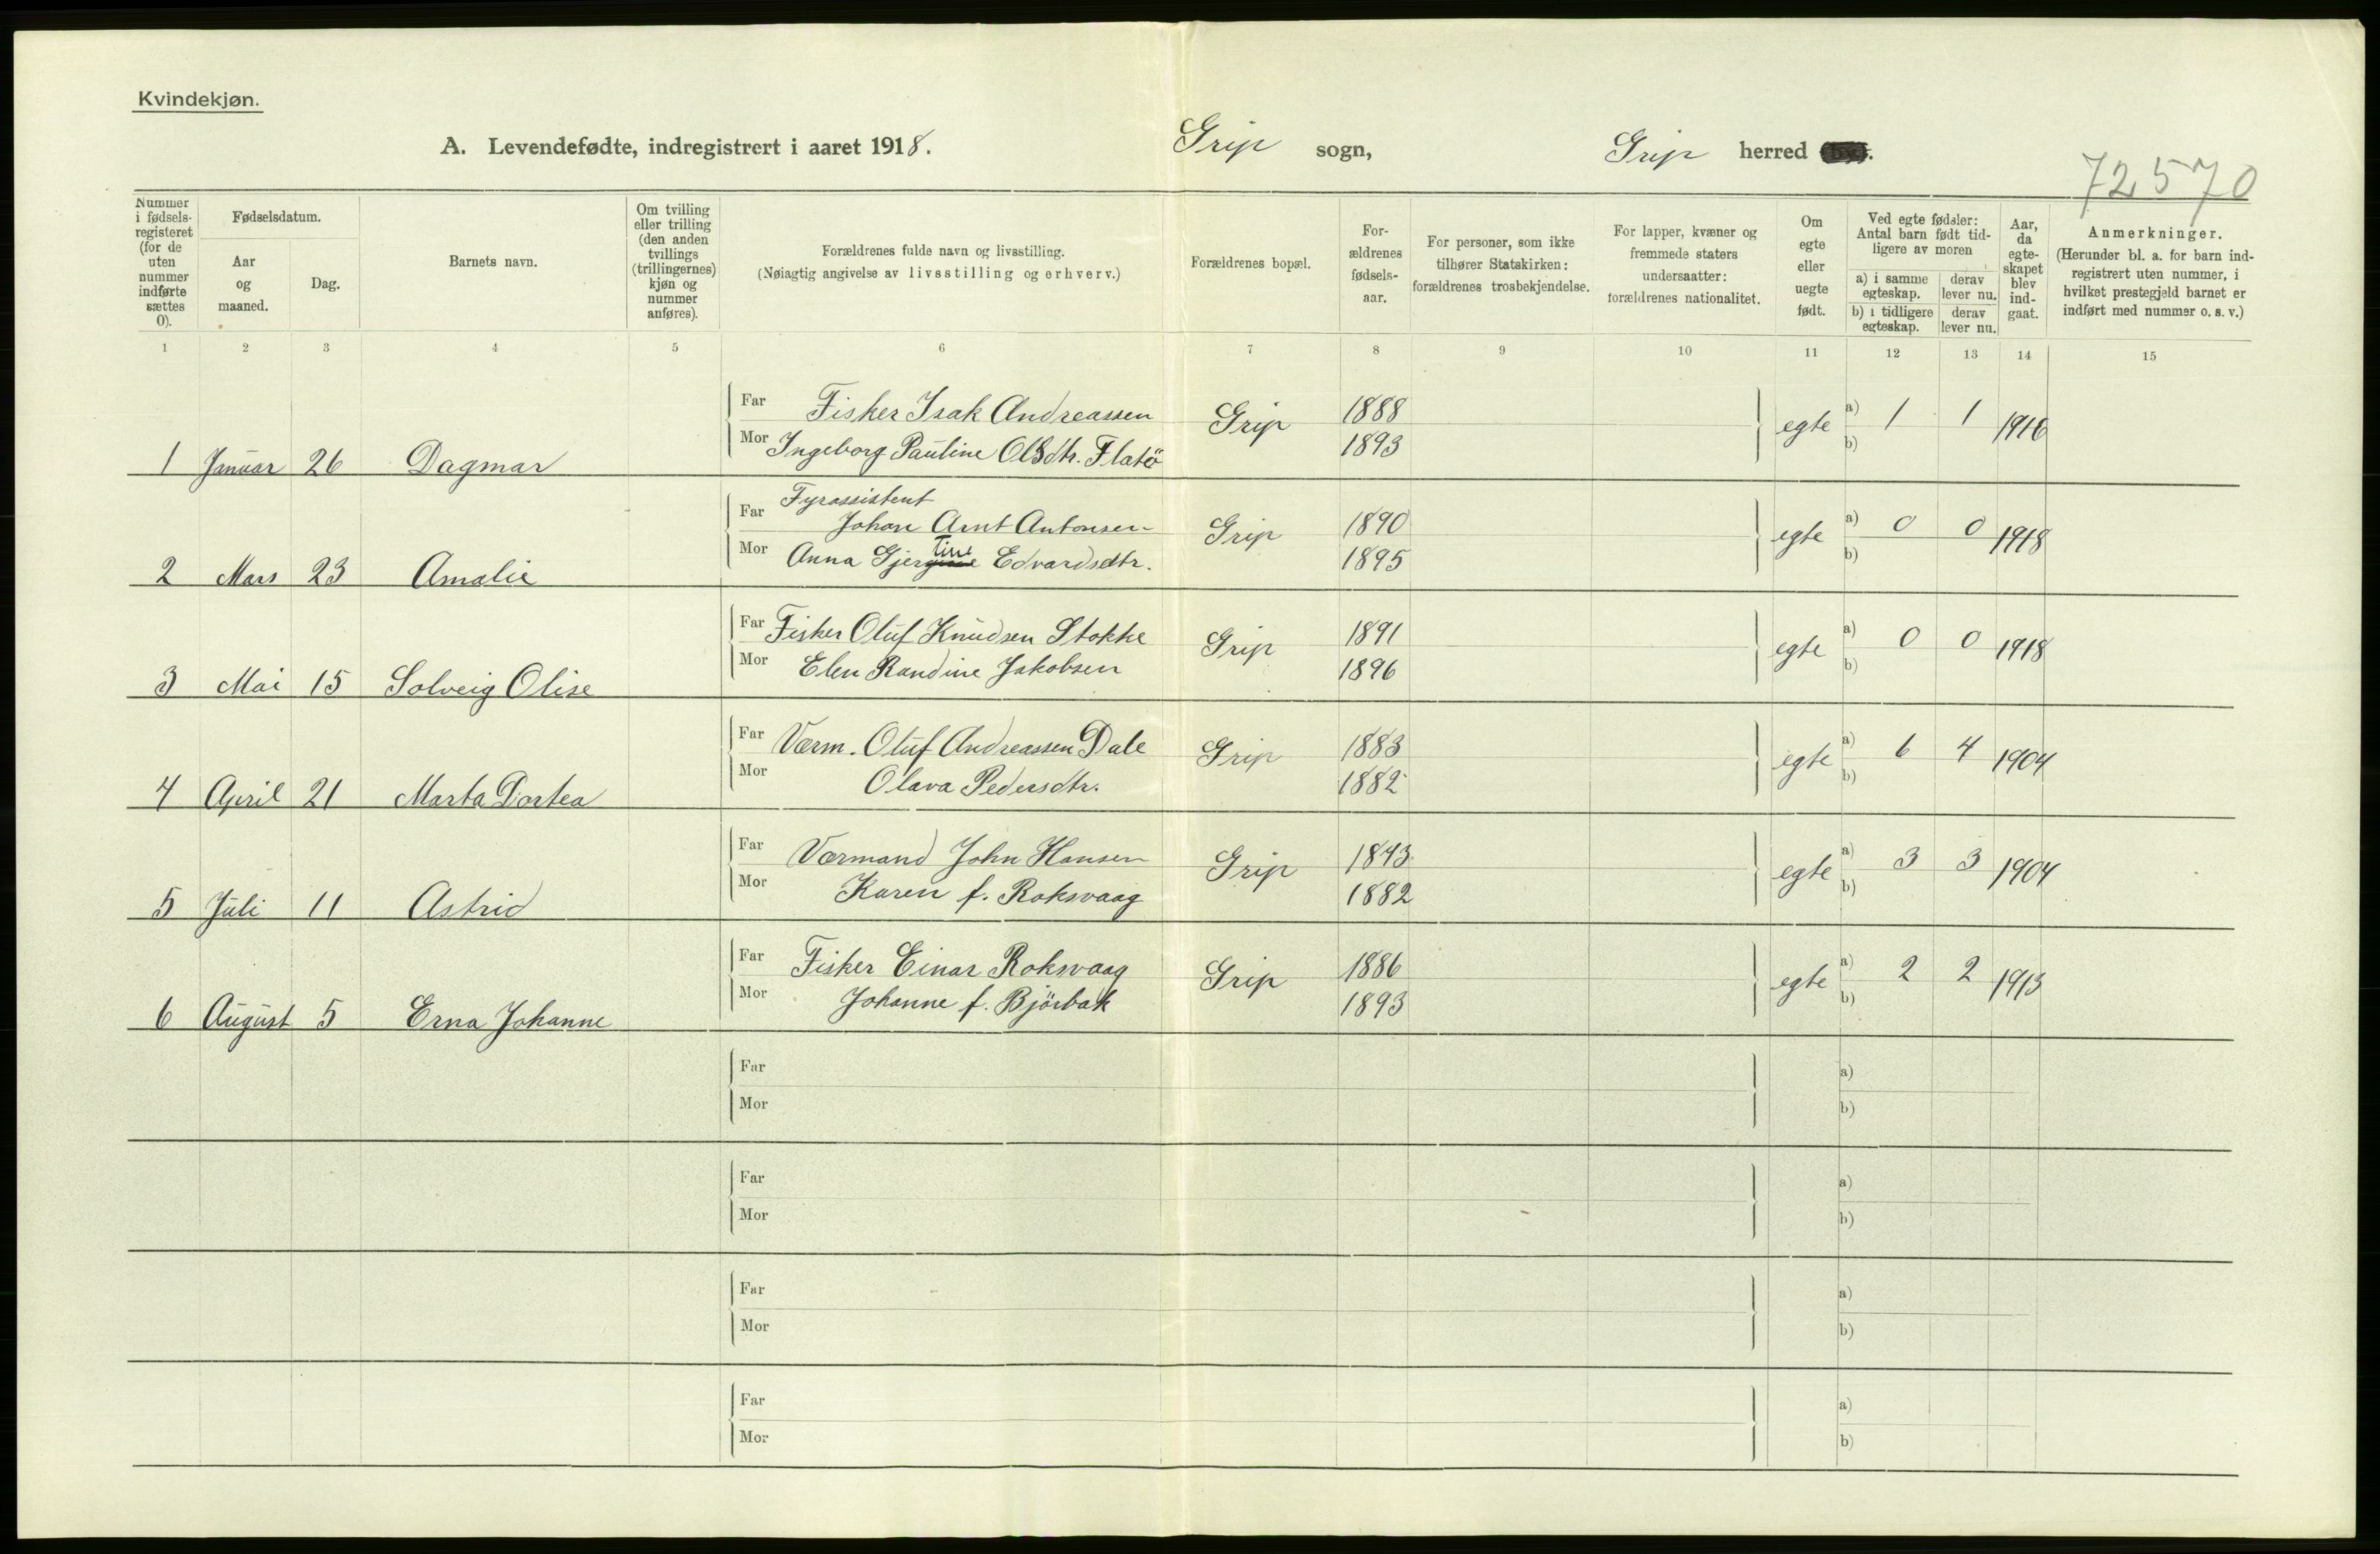 Kvindekjøn.
A. Levendefødte, indregistrert i aaret 1918. Grip sogn, Grip herred
72570
Nummer i fødsels-registeret (for de uten nummer indførte sættes 0).
Fødselsdatum.
Aar og maaned.
Dag.
Barnets navn.
Om tvilling eller trilling (den anden tvillings (trillingernes) kjøn og nummer anføres).
Forældrenes fulde navn og livsstilling.
(Nøiagtig angivelse av livsstilling og erhverv.)
Forældrenes bopæl.
For-ældrenes fødsels-aar.
For personer, som ikke tilhører Statskirken: forældrenes trosbekjendelse.
For lapper, kvæner og fremmede staters undersaatter: forældrenes nationalitet.
Om egte eller uegte født.
Ved egte fødsler: Antal barn født tid-ligere av moren
a) i samme egteskap.
derav lever nu.
b) i tidligere egteskap.
derav lever nu.
Aar, da egte-skapet blev ind-gaat.
Anmerkninger.
(Herunder bl. a. for barn ind-registrert uten nummer, i hvilket prestegjeld barnet er indført med nummer o. s. v.)
1 2 3 4 5 6 7 8 9 10 11 12 13 14 15
Far Fisker Isak Andreassen Grip 1888 egte a) 1 1 1916
1 Januar 26 Dagmar Mor Ingeborg Pauline Olsdtr. Flatö 1893 b)
Fyrassistent
Far Johan Arnt Antonsen Grip 1890 egte a) 0 0 1918
2 Mars 23 Amalie Mor Anna Gjertine Edvardsdtr. 1895 b)
Far Fisker Oluf Knudsen Stokke Grip 1891 egte a) 0 0 1918
3 Mai 15 Solveig Olise Mor Elen Randine Jakobsen 1896 b)
Far Værm. Oluf Andreassen Dale Grip 1883 egte a) 6 4 1904
4 April 21 Marta Dortea Mor Olava Pedersdtr. 1882 b)
FarVærmand John Hansen Grip 1843 egte a) 3 3 1904
5 Juli 11 Astrid Mor Karen f. Roksvaag 1882 b)
Far Fisker Einar Roksvaag Grip 1886 egte a) 2 2 1913
6 August 5 Erna Johanne Mor Johanne f. Björbak 1893 b)
Far a)
Mor b)
Far a)
Mor b)
Far a)
Mor b)
Far a)
Mor b)